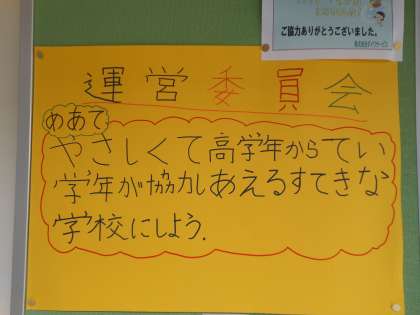 ご協力ありがとうございました。
運営委員会
めあて
やさしくて高学年からてい
学年が協力しあえるすてきな
学校にしよう.